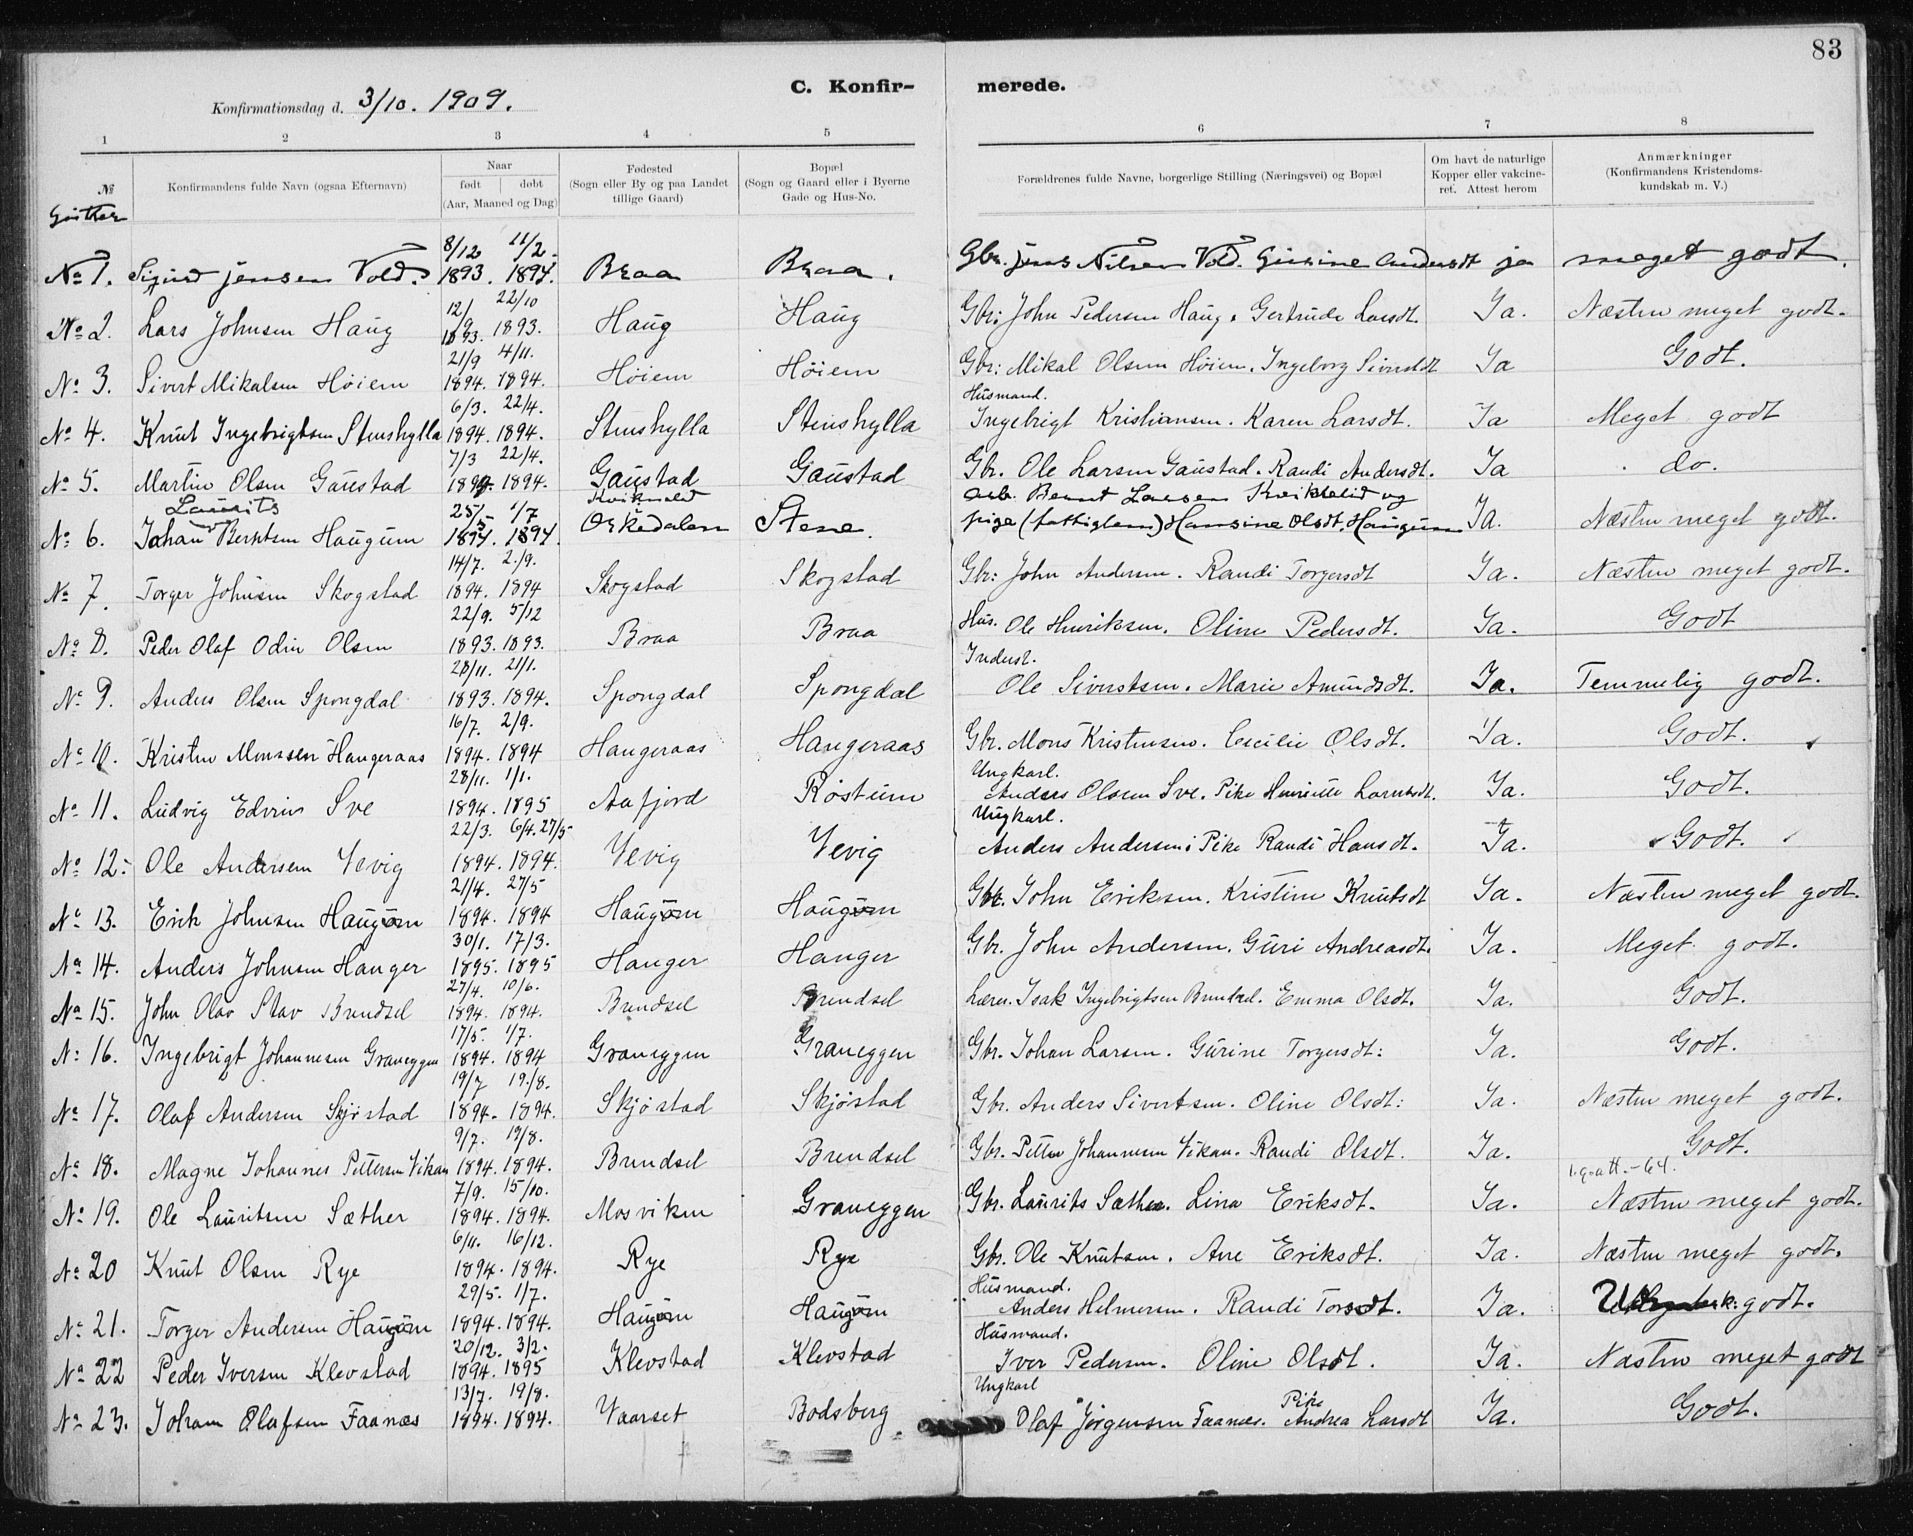 83
C. Konfir- merede.
Konfirmationsdag d. 3/10. 1909.
1 2 3 4 5 6 7 8
№ Konfirmandens fulde Navn (ogsaa Efternavn) Naar født døbt (Aar, Maaned og Dag) Fødested (Sogn eller By og paa Landet tillige Gaard) Bopæl (Sogn og Gaard eller i Byerne Gade og Hus-No. Forældrenes fulde Navne, borgerlige Stilling (Næringsvei) og Bopæl Om havt de naturlige Kopper eller vakcineret. Attest herom Anmærkninger (Konfirmandens Kristendomskundskab m. V.)
Gutter
8/12 11/2.
No 1. Sigurd Jensen Vold. 1893. 1894. Braa Braa. Gbr. Jens Nilsen Vold. Gurine Andersdt ja meget godt.
12/9 22/10
No 2. Lars Johnsen Haug 1893. 1893. Haug Haug Gbr: John Pedersen Haug. Gertrude Larsdt. Ja. Næsten meget godt.
21/9 4/11.
No 3. Sivert Mikalsen Höiem 1894. 1894. Höiem Höiem Gbr: Mikal Olsen Höiem. Ingeborg Sivertsdt Ja Godt.
6/3. 22/4. Husmand.
No 4. Knut Ingebrigtsen Stenshylla 1894. 1894. Stenshylla Stenshylla Ingebrigt Kristiansen. Karen Larsdt. Ja Meget godt
7/3 22/4.
No 5. Martin Olsen Gaustad 1894. 1894. Gaustad Gaustad Gbr. Ole Larsen Gaustad. Randi Andersdt. Ja do.
Laurits 25/5 1/7 Arb. Bernt Larsen og
No 6. Johan Berntsen Haugum 1894. 1894. Orkedalen Stene. pige (fattiglem) Hansine Olsdt. Haugum Ja. Næsten meget godt.
14/7. 2/9.
No 7. Torger Johnsen Skogstad 1894. 1894 Skogstad Skogstad Gbr: John Andersen. Randi Torgersdt Ja. Næsten meget godt.
22/9. 5/12
No 8. Peder Olaf Odin Olsen 1893. 1893. Braa Braa Hus. Ole Henriksen. Oline Pedersdt. Ja. Godt
28/11. 21/1. Inderst.
No 9. Anders Olsen Spongdal 1893. 1894. Spongdal Spongdal Ole Sivertsen. Marie Amundsdt. Ja. Temmelig godt.
16/7. 2/9.
No 10. Kristen Monssen Hangeraas 1894. 1894 Hangeraas Hangeraas Gbr. Mons Kristensen. Cecilie Olsdt. Ja. Godt.
28/11. 1/1. Ungkarl.
No 11. Ludvig Edvin Sve 1894. 1895 Aafjord Röstum Anders Olsen Sve. Pike Henriette Larsdt. Ja. Godt.
22/3. 6/4. 27/5 Ungkarl.
No 12. Ole Andersen Vevig 1894. 1894. Vevig Vevig Anders Andersen. Pike Randi Hansdt. Ja. Godt.
21/4. 27/5
No 13. Erik Johnsen Haugum 1894. 1894 Haugum Haugum Gbr. John Eriksen. Kristine Knutsdt Ja. Næsten meget godt.
30/1. 17/3.
No 14. Anders Johnsen Hanger 1895. 1895 Hanger Hanger Gbr. John Andersen. Guri Andreasdt. Ja. Meget godt.
27/4. 10/6.
No 15. John Olav Stav Brendsel 1894. 1894. Brendsel Brendsel Lærer. Isak Ingebrigtsen Brendsel. Emma Olsdt. Ja. Godt.
17/5. 1/7.
No 16. Ingebrigt Johannesen Graneggen 1894. 1894 Graneggen Graneggen Gbr. Johan Larsen. Gurine Torgersdt: Ja. Godt.
19/7 19./8.
No 17. Olaf Andersen Skjöstad 1894. 1894. Skjöstad Skjöstad Gbr. Anders Sivertsen. Oline Olsdt: Ja. Næsten meget godt.
9/7. 19/8.
No 18. Magne Johannes Pettersen Vikan 1894. 1894. Brendsel Brendsel Gbr. Petter Johannesen Vikan. Randi Olsdt. Ja. Godt.
7/9. 15/10. att. -64.
No 19. Ole Lauritsen Sæther 1894. 1894. Mosviken Graneggen Gbr. Laurits Sæther. Lina Eriksdt. Ja. Næsten meget godt.
6/11. 16/12.
No 20 Knut Olsen Rye 1894. 1894. Rye Rye Gbr. Ole Knutsen. Ane Eriksdt. Ja. Næsten meget godt.
29/5. 1/7. Husmand.
No 21. Torger Andersen Haugum 1894. 1894. Haugum Haugum Anders Helmersen. Randi Torsdt. Ja. godt.
20/12. 3/2. Husmand.
No 22 Peder Iversen Klevstad 1894. 1895 Klevstad Klevstad Iver Pedersen. Oline Olsdt. Ja. Næsten meget godt
13/7. 19/8. Ungkarl Pike
No 23. Johan Olafsen Faanæs 1894. 1894. Vaarset Bodsberg Olaf Jörgensen Faanæs. Andrea Larsdt Ja. Godt.